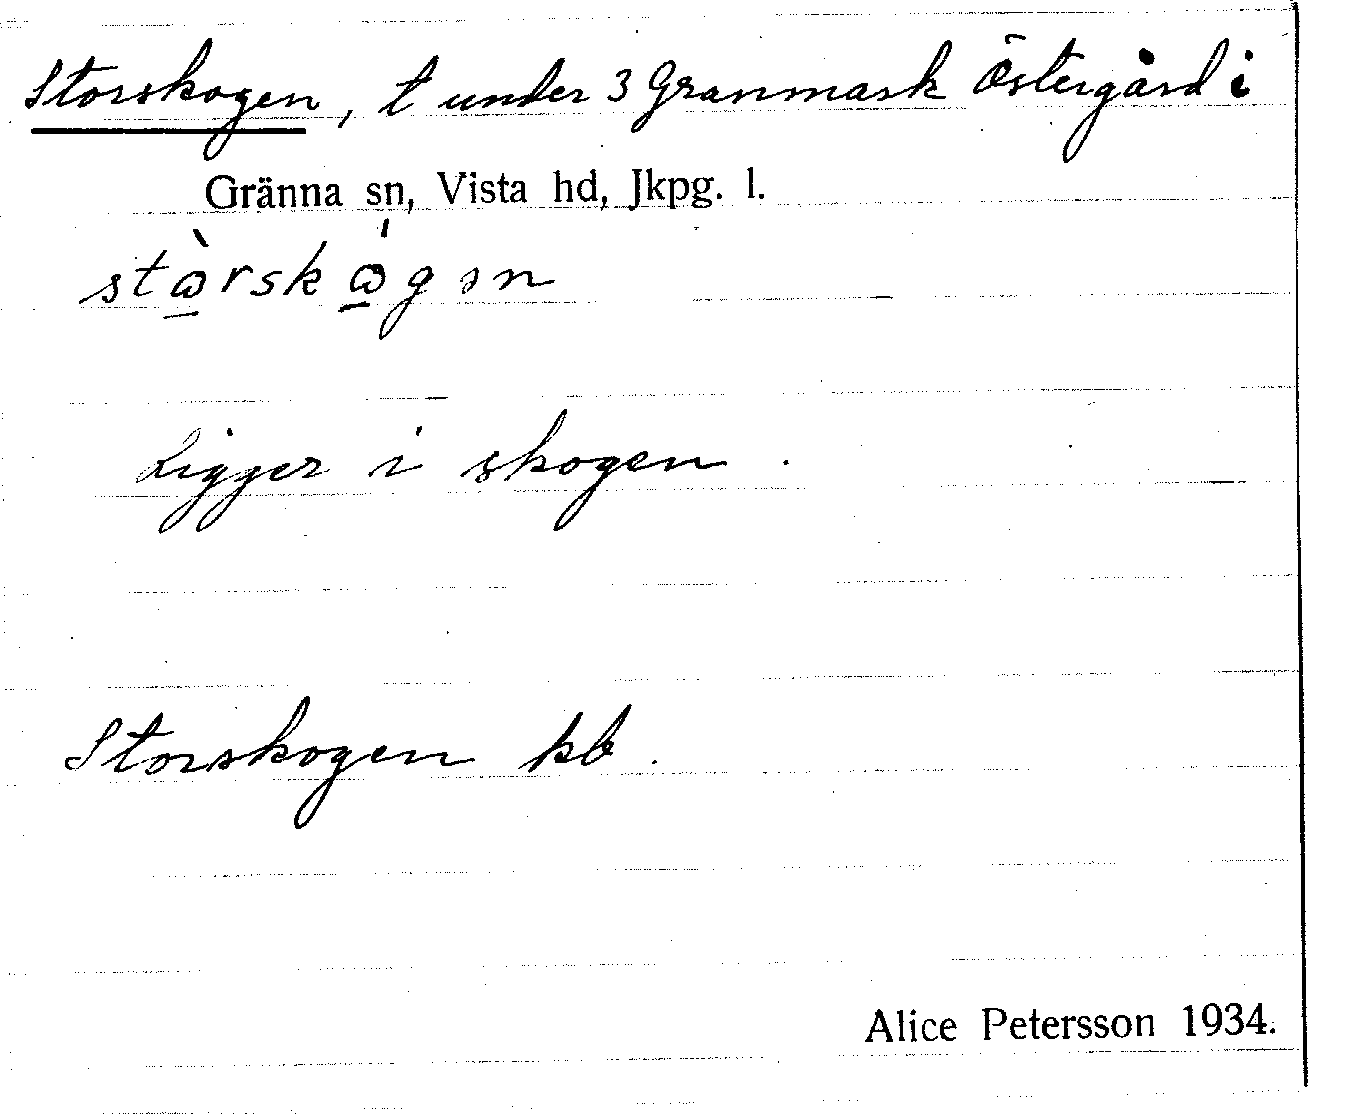 Storskogen, t under 3 Granmark Östergård i
Gränna sn, Vista hd, Jkpg. l.
stὼ̲rskώ̲gən
Ligger i skogen.
Storskogen kb.
Alice Petersson 1934.